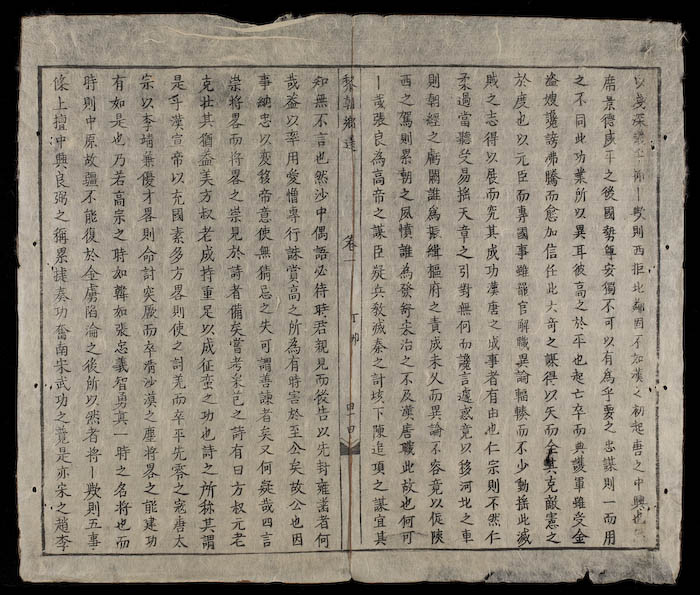 則西拒北鄰因不如漢之初起唐之中興也
席景德咸平之後國勢尊安獨不可以有為乎要之忠謀則一而用
之不同此功業所以異耳彼高之於平也起亡卒而典護軍雖受金
盗嫂讒謗沸騰而愈加信任此大奇之謀得以矢而全其克敵憲之
於度也以元臣而專國事雖羅官解職異論輻輳而不少動摇此滅
賊之志得以展而究其成功漢唐之成事者有由也仁宗則不然仁
柔過當聽受易摇天章之引對無何而讒言遽惑竟以移河北之車
則朝經之虧闕誰為振緝樞府之責成未乆而異論不容竟以促陜
西之駕則累朝之風憤誰為發奇宋治之不及漢唐職此故也何可
丨哉張良為高帝之謀臣疑兵敎滅秦之計垓下陳追項之謀宜其
黎朝鄉選 卷一 丁卯
知無不言也然沙中偶語必待時君親見而後告以先封雍齒者何
哉蓋以率用愛憎專行誅賞高之所為有時害於至公矣故公也因
事納忠以変移帝意使無猜忌之失可謂善諫者矣又何疑哉四言
崇將畧而將畧之崇見於詩者備矣嘗考采芑之詩有曰方叔元老
克壯其猶蓋美方叔老成持重足以成征蛮之功也詩之所称其謂
是乎漢宣帝以充國素多方畧則使之討羌而卒平先零之寇唐太
宗以李靖兼優才畧則命討突厥而卒清沙漠之塵將畧之能建功
有如是也乃若高宗之時如韓如張忠義智勇真一時之名將也而
時則中原故疆不能復於金虜陷淪之後所以然者將丨歟則五事
條上擅中興良弼之稱累捷奏功奮南宋武功之竟是亦宋之趙李